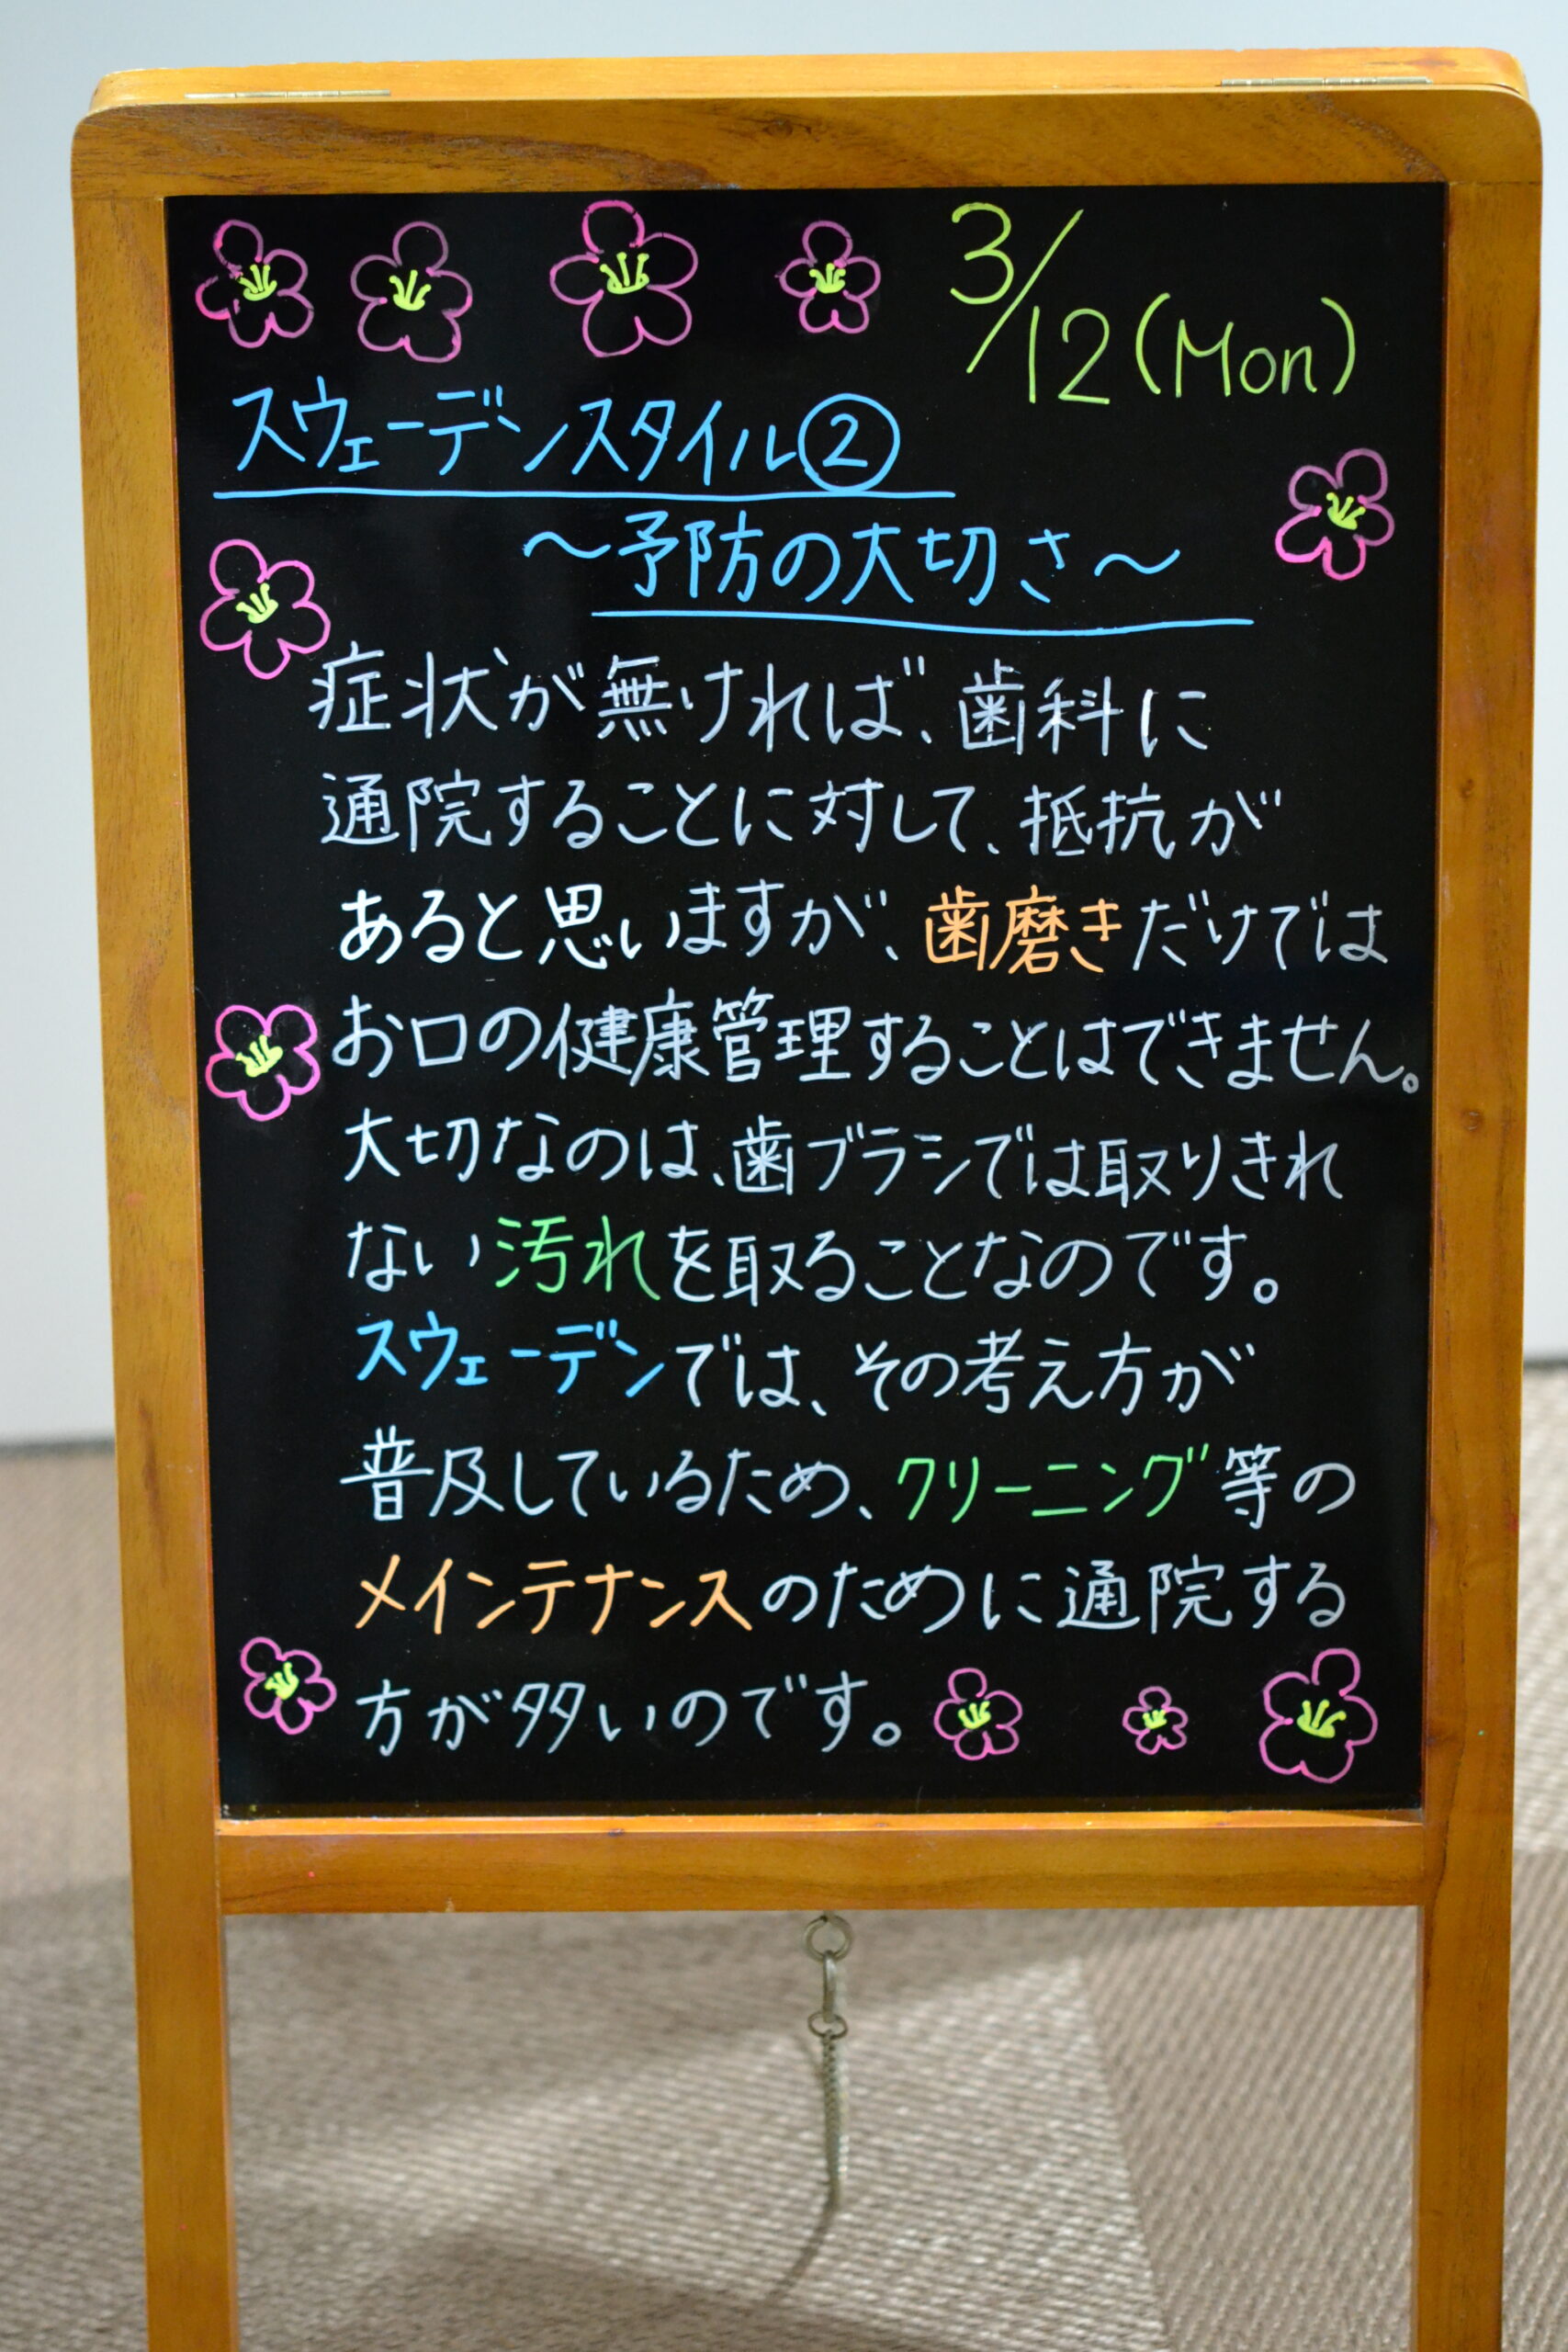 3/12(Mon)
スウェーデンスタイル②
～予防の大切さ～
症状が無ければ、歯科に
通院することに対して、抵抗が
あると思いますが、歯磨きだけでは
お口の健康管理することはできません。
大切なのは、歯ブラシでは取りきれ
ない汚れを取ることなのです。
スウェーデンでは、その考え方が
普及しているため、クリーニング等の
メインテナンスのために通院する
方が多いのです。